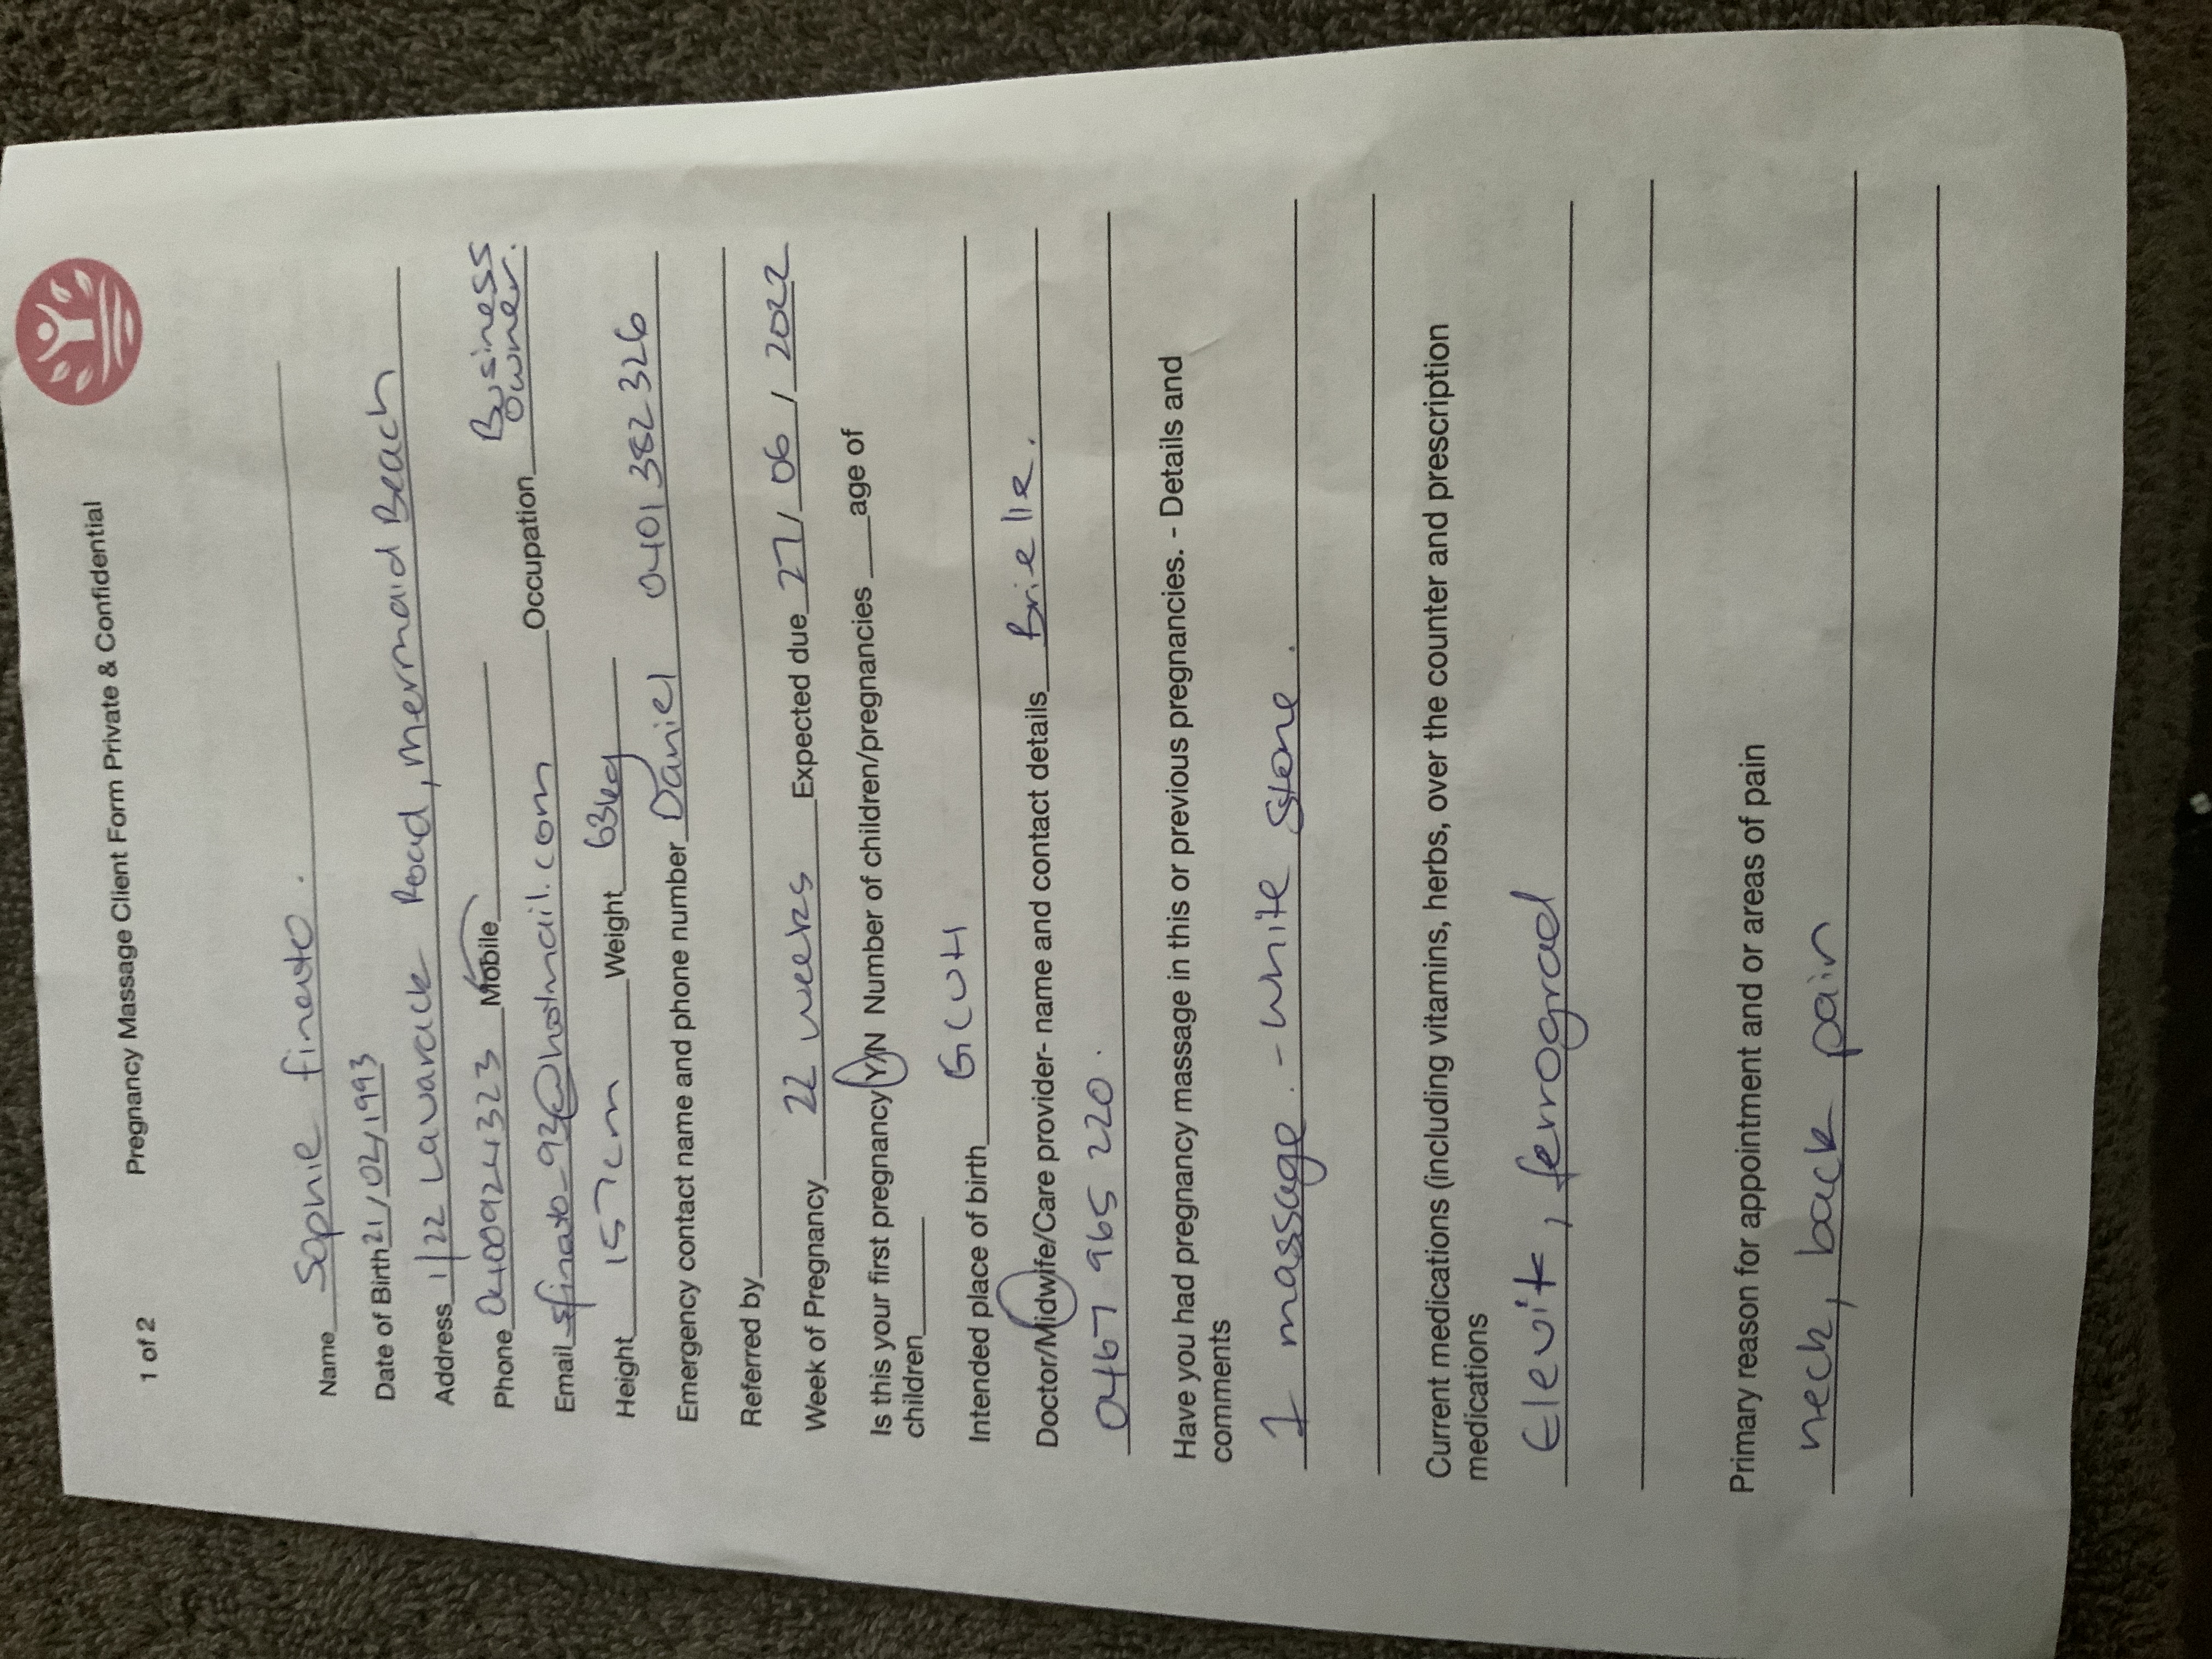 1 of 2 Pregnancy Massage Client Form Private & Confidential
Name Sophie finato.
Date of Birth 21/04/1993
Address 1/22 Lavarack Road, Mermaid Beach
Phone 0410092 4323 Mobile Occupation Business Owner.
Email sfinato_93@hotmail.com
Height 157cm Weight 63kg
Emergency contact name and phone number Daniel 0401 382 326
Referred by
Week of Pregnancy 22 weeks Expected due 27/06/2022
Is this your first pregnancy Y/N Number of children/pregnancies age of
children
Intended place of birth GCUH
Doctor/Midwife/Care provider- name and contact details Brielle.
0467 965 220.
Have you had pregnancy massage in this or previous pregnancies. - Details and
comments
1 massage. - white stone.
Current medications (including vitamins, herbs, over the counter and prescription
medications
Elevit, ferrograd
Primary reason for appointment and or areas of pain
neck, back pain